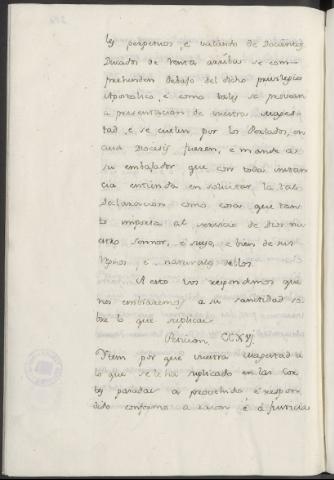 les perpetuos, e valiendo de Docientos
Ducados de renta arriba se com-
prehenden debajo del dicho privilegio
Apostolico, é como tales se provean
a presentacion de vuestra Mages-
tad, e se cuelen por los Perlados, en
cuia Diocesis fueren, e mande a
su embajador que con toda instan
cia entienda en solicitar la tal
Declaracion como cosa que tan-
to importa al servicio de Dios nu
estro Sennor, é suyo, e bien de sus
Reynos, é naturales dellos.
A esto vos respondemos que
nos embiaremos a su santidad so-
bre lo que suplicais.
Peticion CCXVI.
Otem por que vuestra Magestad a
lo que se le ha suplicado en las Cor
tes pasadas a proveido é respon-
dido conforme a razon é a justicia